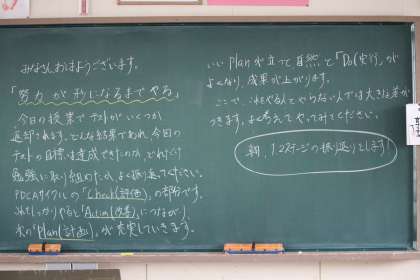 みなさんおはようございます。
「努力が形になるまでやる」
今日の授業でテストがいくつか
返却されます。どんな結果であれ、今回の
テストの目標は達成できたのか、どれだけ
勉強に取り組めたか、よく振り返ってください。
PDCAサイクルの「Check(評価)」の部分です。
これをしっかりやると「Action(改善)」につながり、
次の「Plan(計画)」が充実していきます。
いいPlanが立つと自然と「Do(実行)」が
よくなり、成果が上がります。
ここで、これをやる人とやらない人では大きな差が
つきます。よく考えてやってみてください。
朝、1.2ステージの振り返りをします!